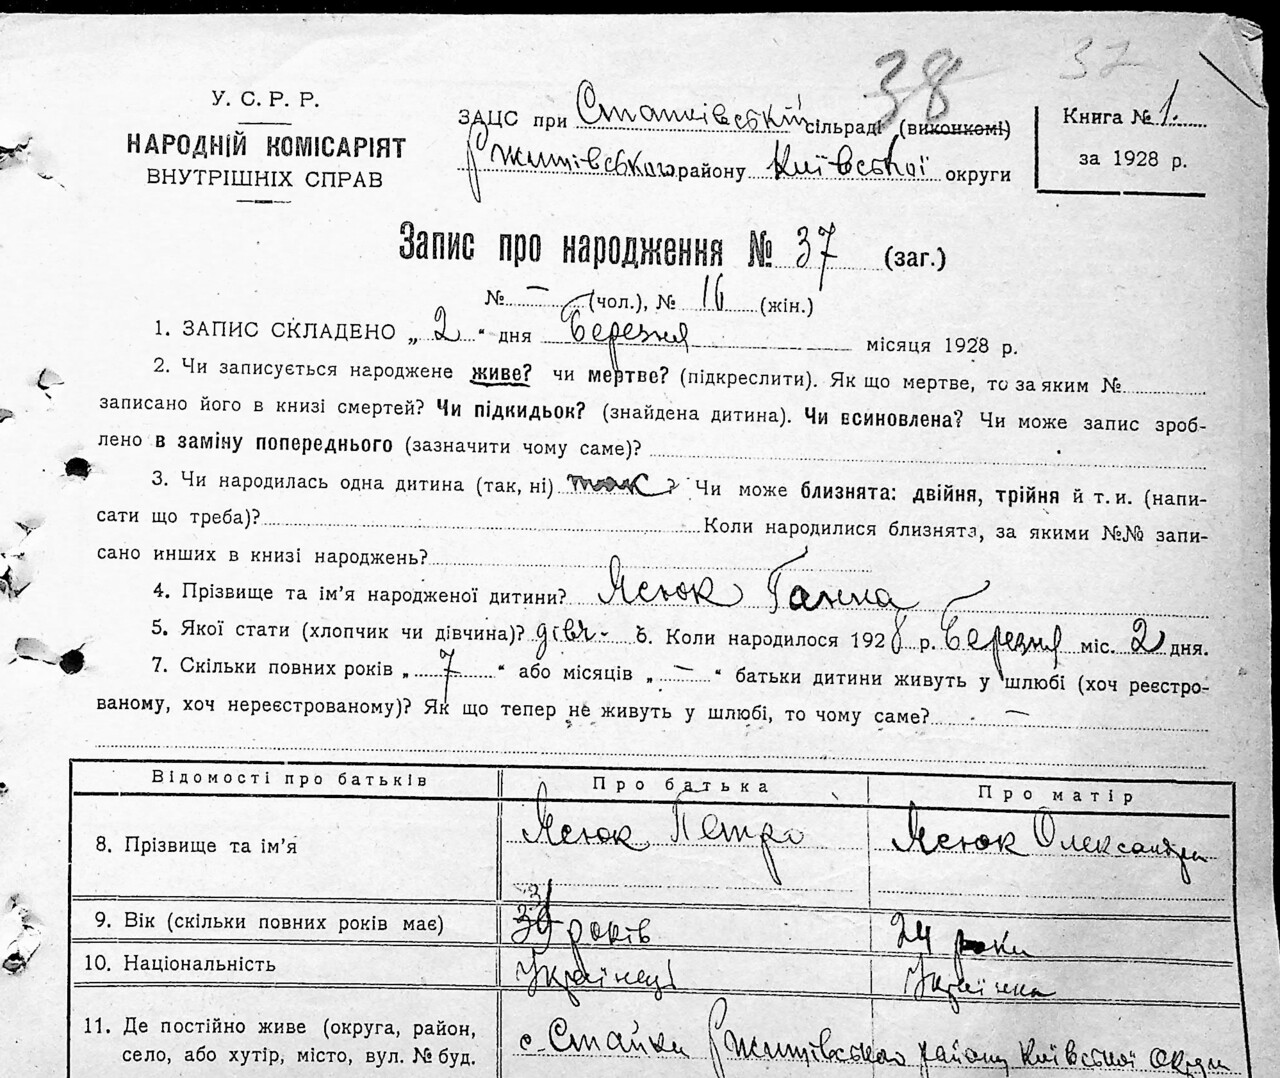 38 37
У. С. Р. Р.
НАРОДНІЙ КОМІСАРІЯТ
ВНУТРІШНІХ СПРАВ
ЗАЦС при Стайківській сільраді (виконкомі)
Ржищівського району Київської округи
Книга № 1.
за 1928 р.
Запис про народження № 37 (заг.)
№ — (чол.), № 16 (жін.)
1. ЗАПИС СКЛАДЕНО „ 2 “ дня Березня місяця 1928 р.
2. Чи записується народжене живе? чи мертве? (підкреслити). Як що мертве, то за яким №
записано його в книзі смертей? Чи підкидьок? (знайдена дитина). Чи всиновлена? Чи може запис зроб-
лено в заміну попереднього (зазначити чому саме)?
3. Чи народилась одна дитина (так, ні) так ? Чи може близнята: двійня, трійня й т. и. (напи-
сати що треба)? Коли народилися близнята, за якими №№ запи-
сано инших в книзі народжень?
4. Прізвище та ім’я народженої дитини? Ясюк Ганна
5. Якої стати (хлопчик чи дівчина)? дівч- 6. Коли народилося 1928 р. Березня міс. 2 дня.
7. Скільки повних років „ 7 “ або місяців „ — “ батьки дитини живуть у шлюбі (хоч реєстро-
ваному, хоч нереєстрованому)? Як що тепер не живуть у шлюбі, то чому саме? —
Відомості про батьків Про батька Про матір
8. Прізвище та ім’я Ясюк Петро Ясюк Олександра
9. Вік (скільки повних років має) років 24 роки
10. Національність Українець Українка
11. Де постійно живе (округа, район,
село, або хутір, місто, вул. № буд. с. Стайки Ржищівського району Київської округи